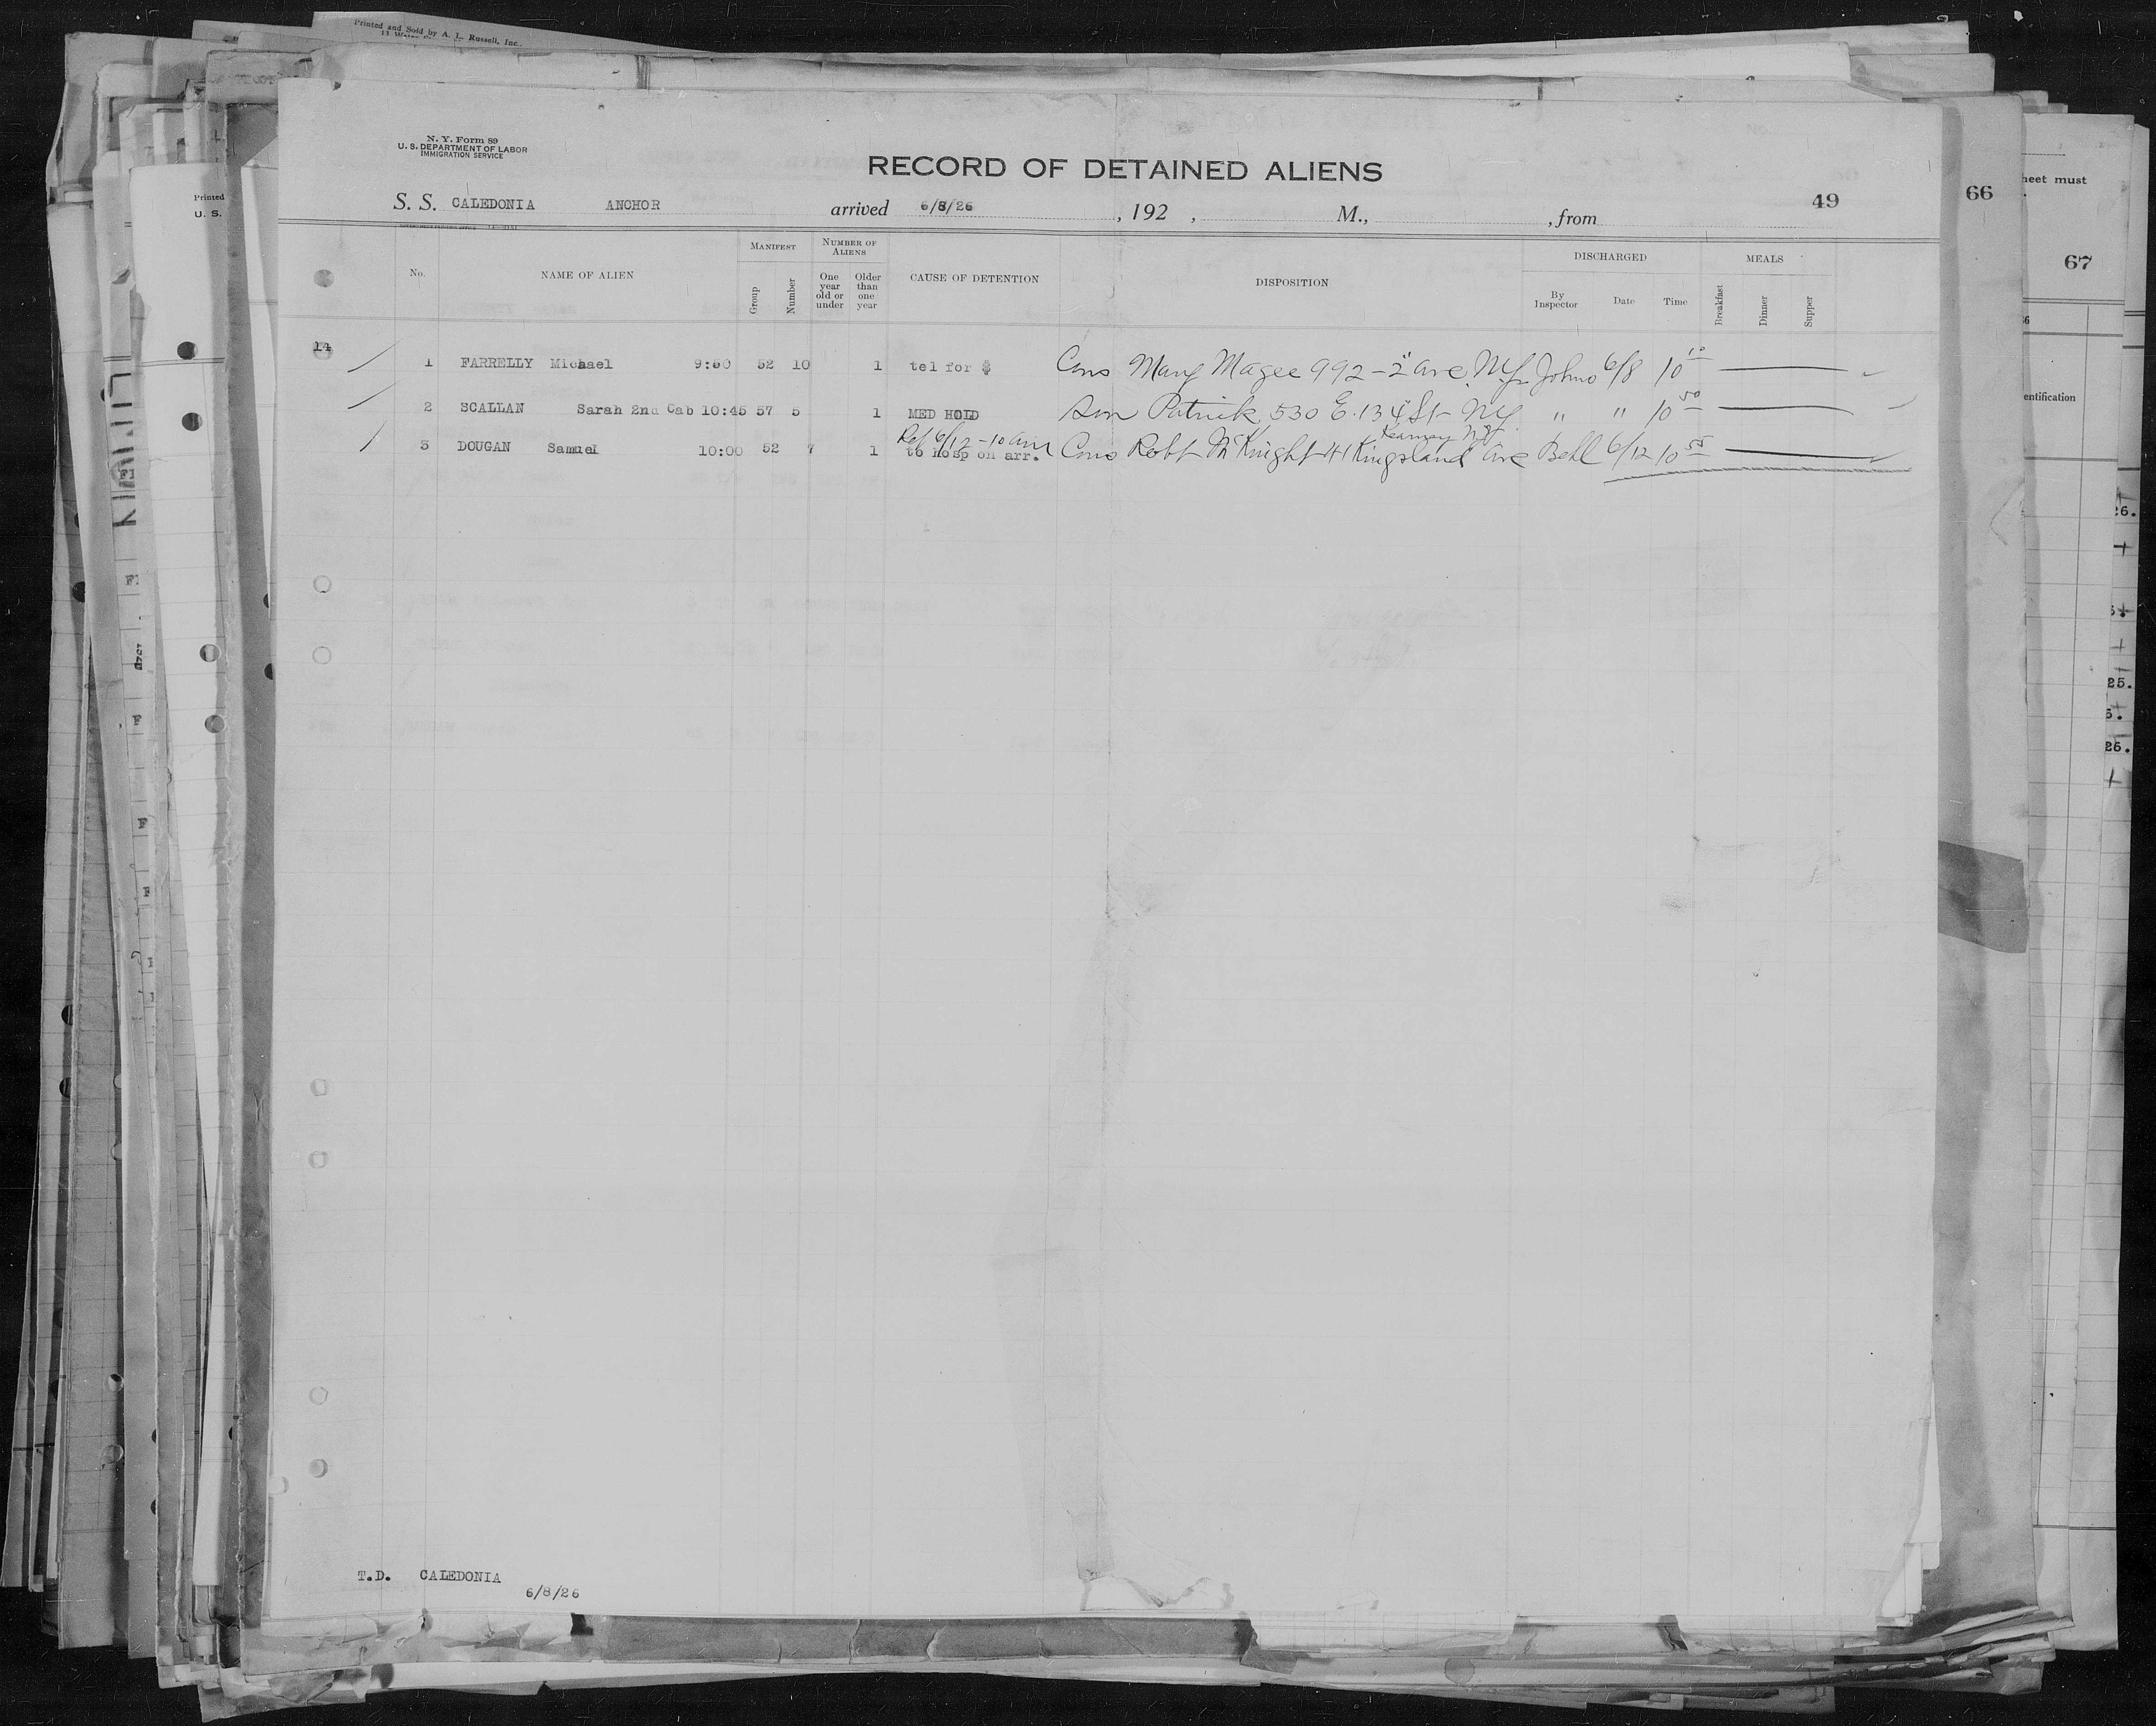 Printed and Sold by A. L. Russell, Inc.
N. Y. Form 89
U. S. DEPARTMENT OF LABOR
IMMIGRATION SERVICE
RECORD OF DETAINED ALIENS
S. S. CALEDONIA ANCHOR arrived 6/8/26, 192 , M., , from 49
66
67
heet must
Printed
U. S.
No. NAME OF ALIEN MANIFEST Group Number NUMBER OF ALIENS One year old or under Older than one year CAUSE OF DETENTION DISPOSITION DISCHARGED By Inspector Date Time MEALS Breakfast Dinner Supper
entification
14
1 FARRELLY Michael 9:50 52 10 1 tel for $ Cons Mary Magee 992-2" ave. NY Johns 6/8 10 10
2 SCALLAN Sarah 2nd Cab 10:45 57 5 1 MED HOLD Son Patrick 530 E. 134 St NY. " " 10 50
Ref 6/12-10 am Kearney NJ
3 DOUGAN Samuel 10:00 52 7 1 to hosp on arr. Cons Robt McKnight 41 Kingsland ave Behl 6/12 10 55
26.
25.
5.
26.
T.D. CALEDONIA
6/8/26